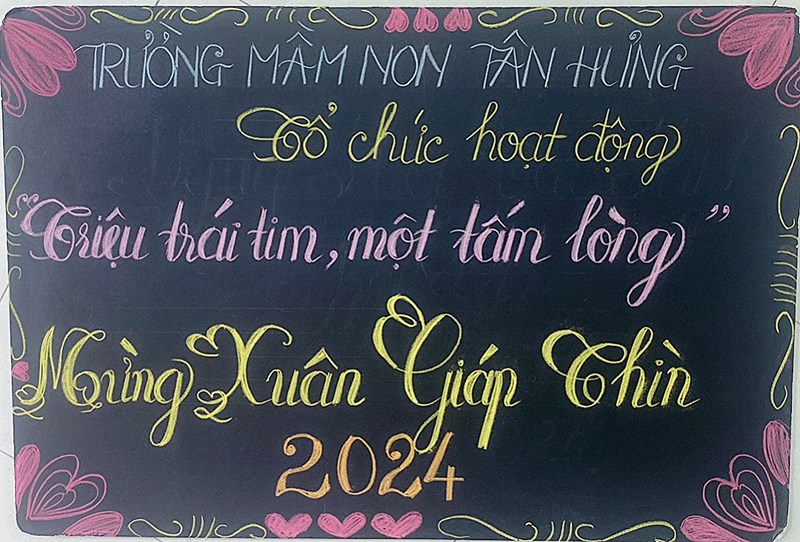 TRƯỜNG MẦM NON TÂN HƯNG
Tổ chức hoạt động
"Triệu trái tim, một tấm lòng"
Mừng Xuân Giáp Thìn
2024